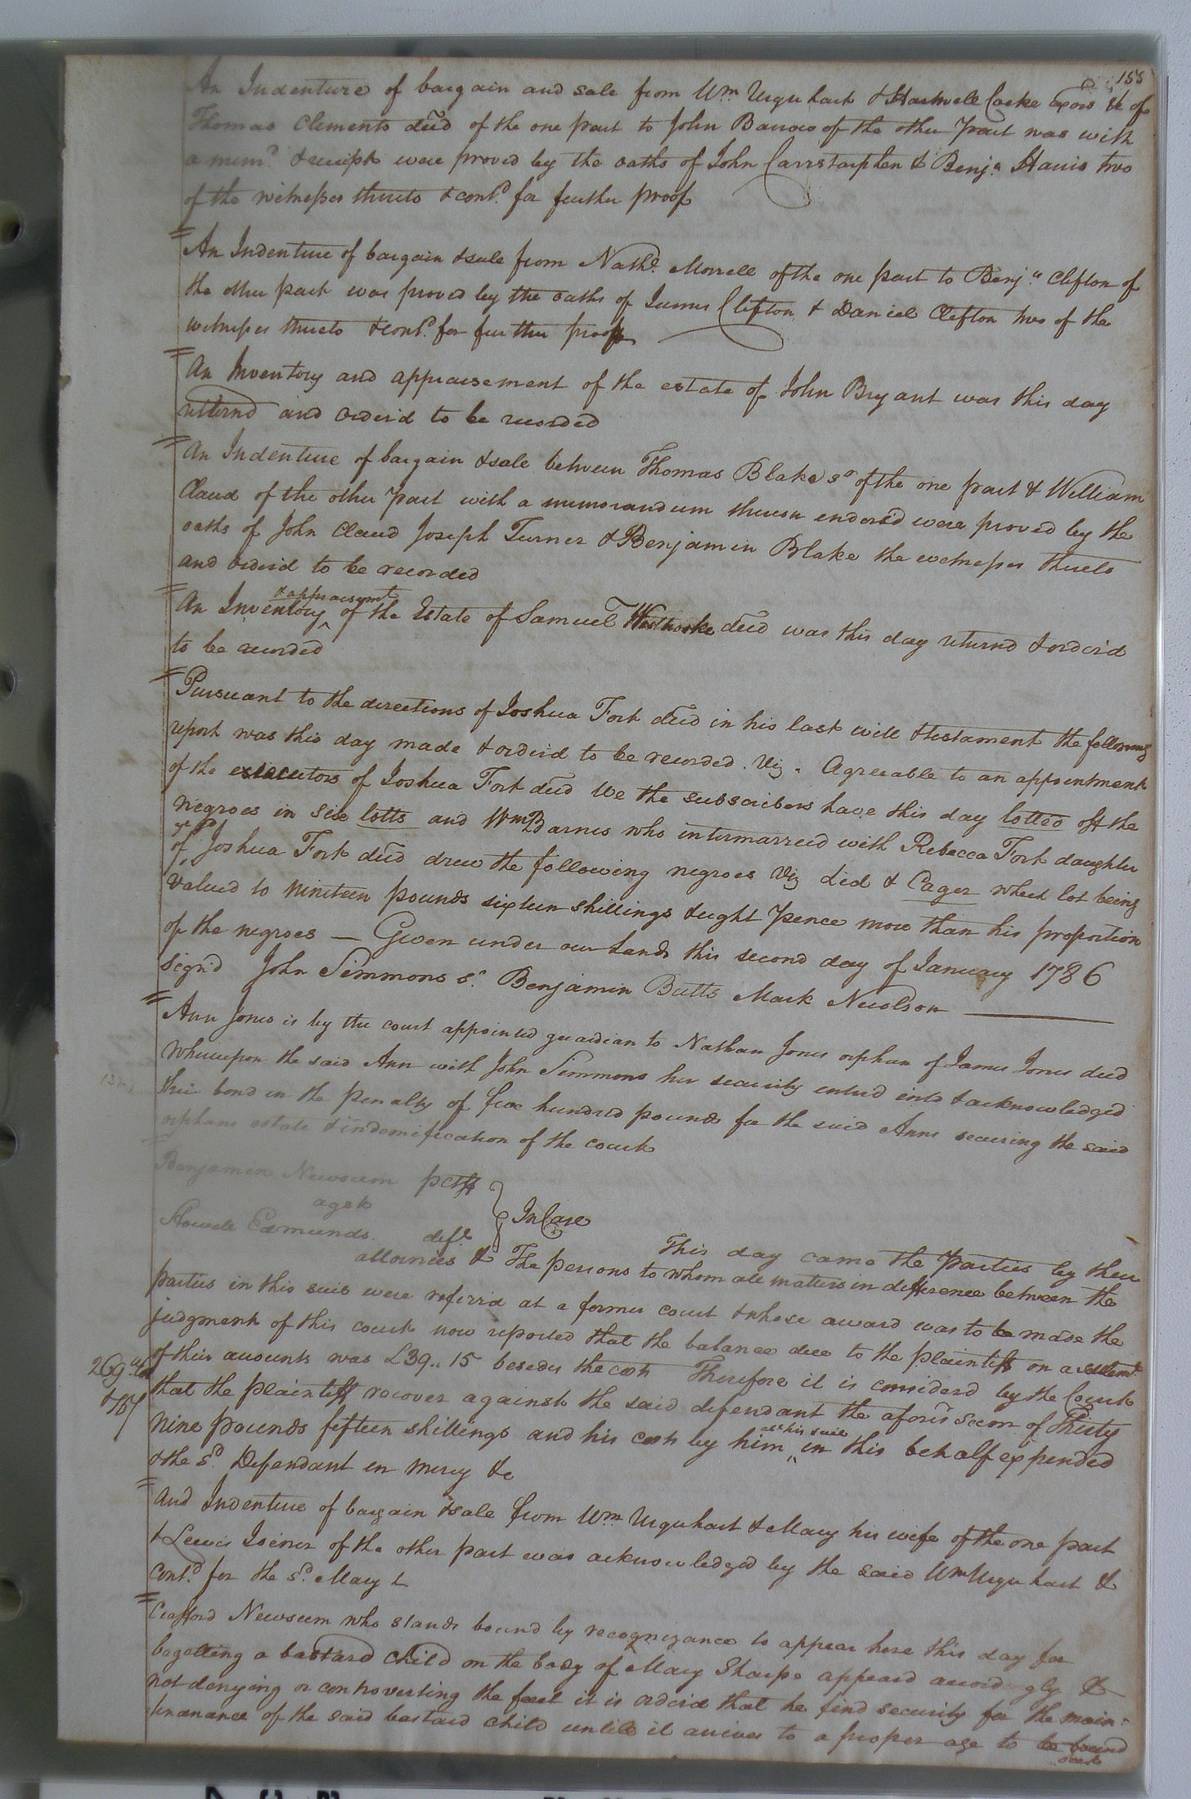 155
An Indenture of bargain and sale from Wm Urquhart & Hartwell Cocke Exors &c of
Thomas Clements decd of the one part to John Barrow of the other part was with
a memd & receipt were proved by the oaths of John Carrstarphen & Benja Harris two
of the witnesses thereto & contd for further proof
An Indenture of bargain & sale from Nathl Morrell of the one part to Benja Clifton of
the other part was proved by the oaths of James Clifton & Daniel Clifton two of the
witnesses thereto & contd for further proof
An Inventory and appraisement of the estate of John Bryant was this day
returnd and orderd to be recorded
An Indenture of bargain & sale between Thomas Blake Sr of the one part & William
Claud of the other part with a memorandum thereon endorsd were proved by the
oaths of John Claud Joseph Turner & Benjamin Blake the witnesses thereto
and orderd to be recorded
& appraisemt
An Inventory ^ of the Estate of Samuel Westbrooke decd was this day returnd & orderd
to be recorded
Pursuant to the directions of Joshua Fort decd in his last will & testament the following
report was this day made & orderd to be recorded. Viz. Agreeable to an appointment
of the executors of Joshua Fort decd We the subscribers have this day lotted off the
negroes in six lotts and Wm Barnes who intermarreed with Rebecca Fort daughter
of Joshua Fort decd drew the following negroes Viz & Cager which lot being
valued to nineteen pounds sixteen shillings & eight pence more than his proportion
of the negroes — Given under our hands this second day of January 1786
signd John Simmons Sr Benjamin Butts Mark Nicolson
Ann Jones is by the court appointed guardian to Nathan Jones orphan of James Jones decd
Whereupon the said Ann with John Simmons her security enterd into & acknowledged
their bond in the penalty of five hundred pounds for the said Anns securing the said
orphans estate & indemnification of the court
Benjamin Newsum pltff
agst } In Case
Howell Edmunds deft
This day came the parties by their
attornies & The persons to whom all matters in difference between the
parties in this suit were referrd at a former court & whose award was to be made the
judgment of this court now reported that the balance due to the plaintiff on a settlemt
of their accounts was £39.. 15 besides the costs Therefore it is considerd by the Court
that the plaintiff recover against the said defendant the aforesd sum of Thirty
nine pounds fifteen shillings and his costs by him abt his suit in this behalf expended
& the sd Defendant in mercy &c
And Indenture of bargain & sale from Wm Urquhart & Mary his wife of the one part
& Lewis Joiner of the other part was acknowledged by the said Wm Urquhart &
contd for the sd Mary
Crafford Newsum who stands bound by recognizance to appear here this day for
begetting a bastard child on the body of Mary Sharpe appeard accordingly &
not denying or controverting the fact it is orderd that he find security for the main-
tenance of the said bastard child until it arrives to a proper age to be bound